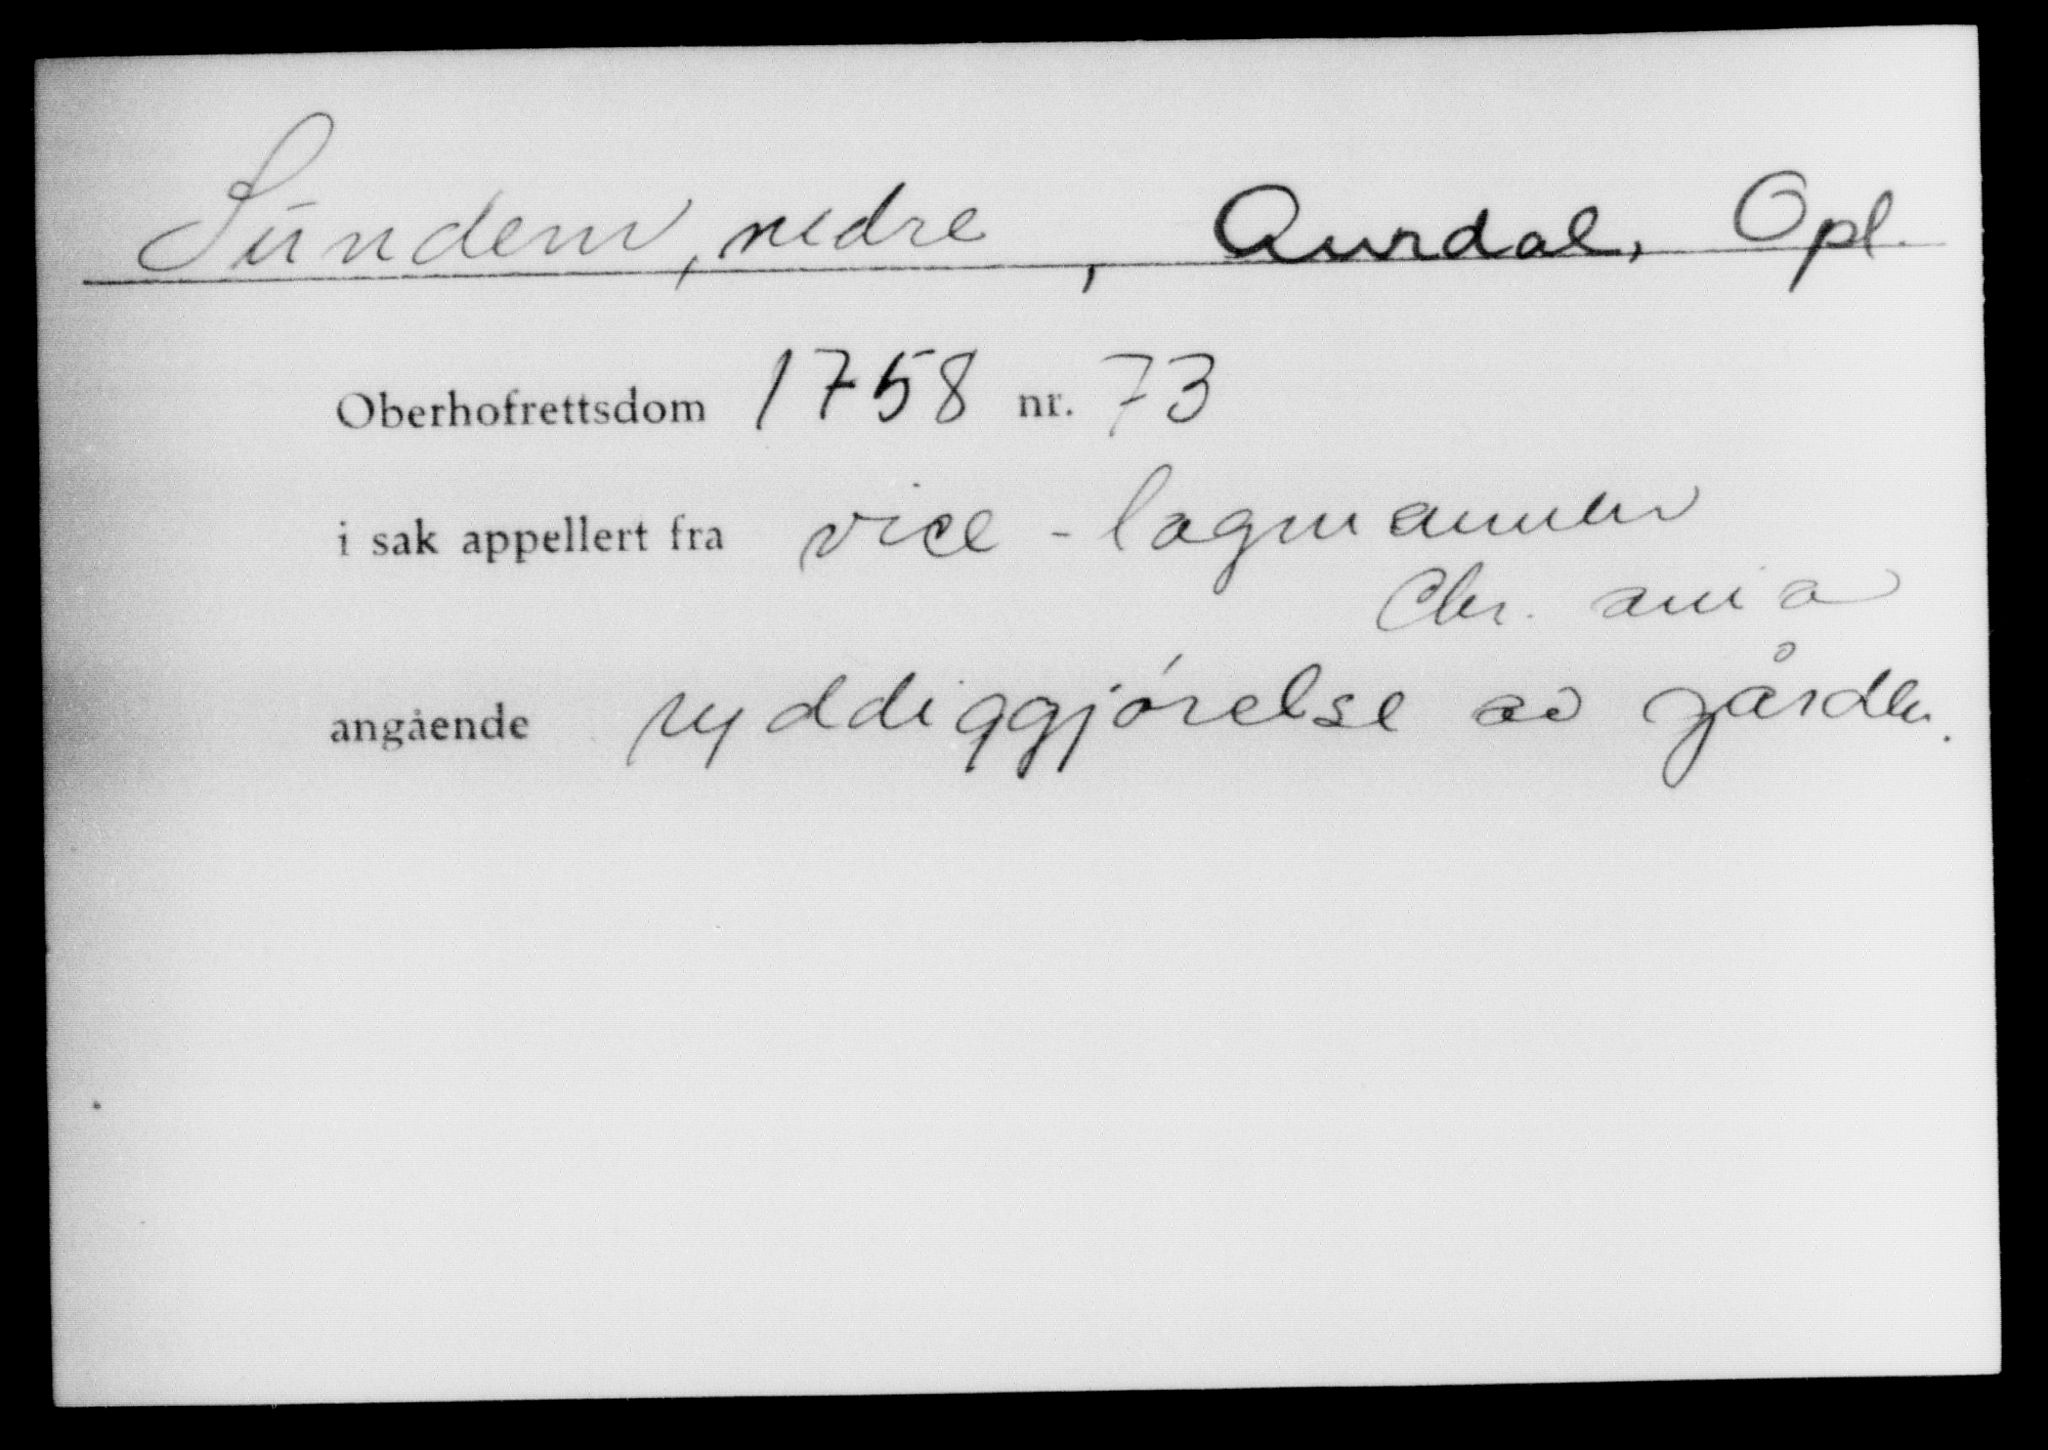 Sundem, nedre, Aurdal, Opl.
Oberhofrettsdom 1758 nr. 73
i sak appellert fra vice-lagmannen
Chr.ania
angående ryddiggjørelse av gården.